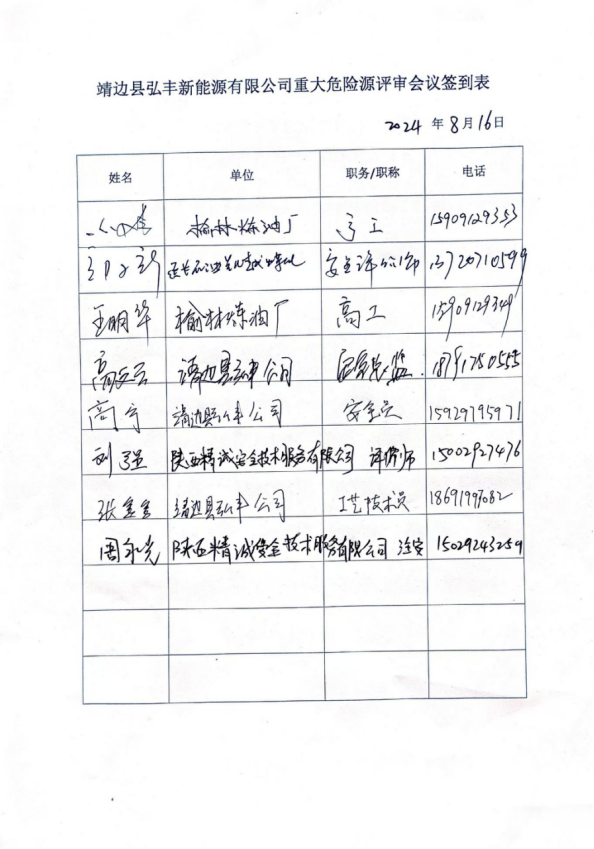 靖边县弘丰新能源有限公司重大危险源评审会议签到表
2024 年 8 月 16 日
姓名 单位 职务/职称 电话
榆林炼油厂 高工 15909129353
13720710599
王明华 榆林炼油厂 高工 15909129349
靖边县弘丰公司
高宁 靖边县弘丰公司 安全员 15929795971
刘强 陕西精诚安全技术服务有限公司 评价师 15002927476
张金金 靖边县弘丰公司 工艺技术员 18691997082
周永光 陕西精诚安全技术服务有限公司 注安 15029243259